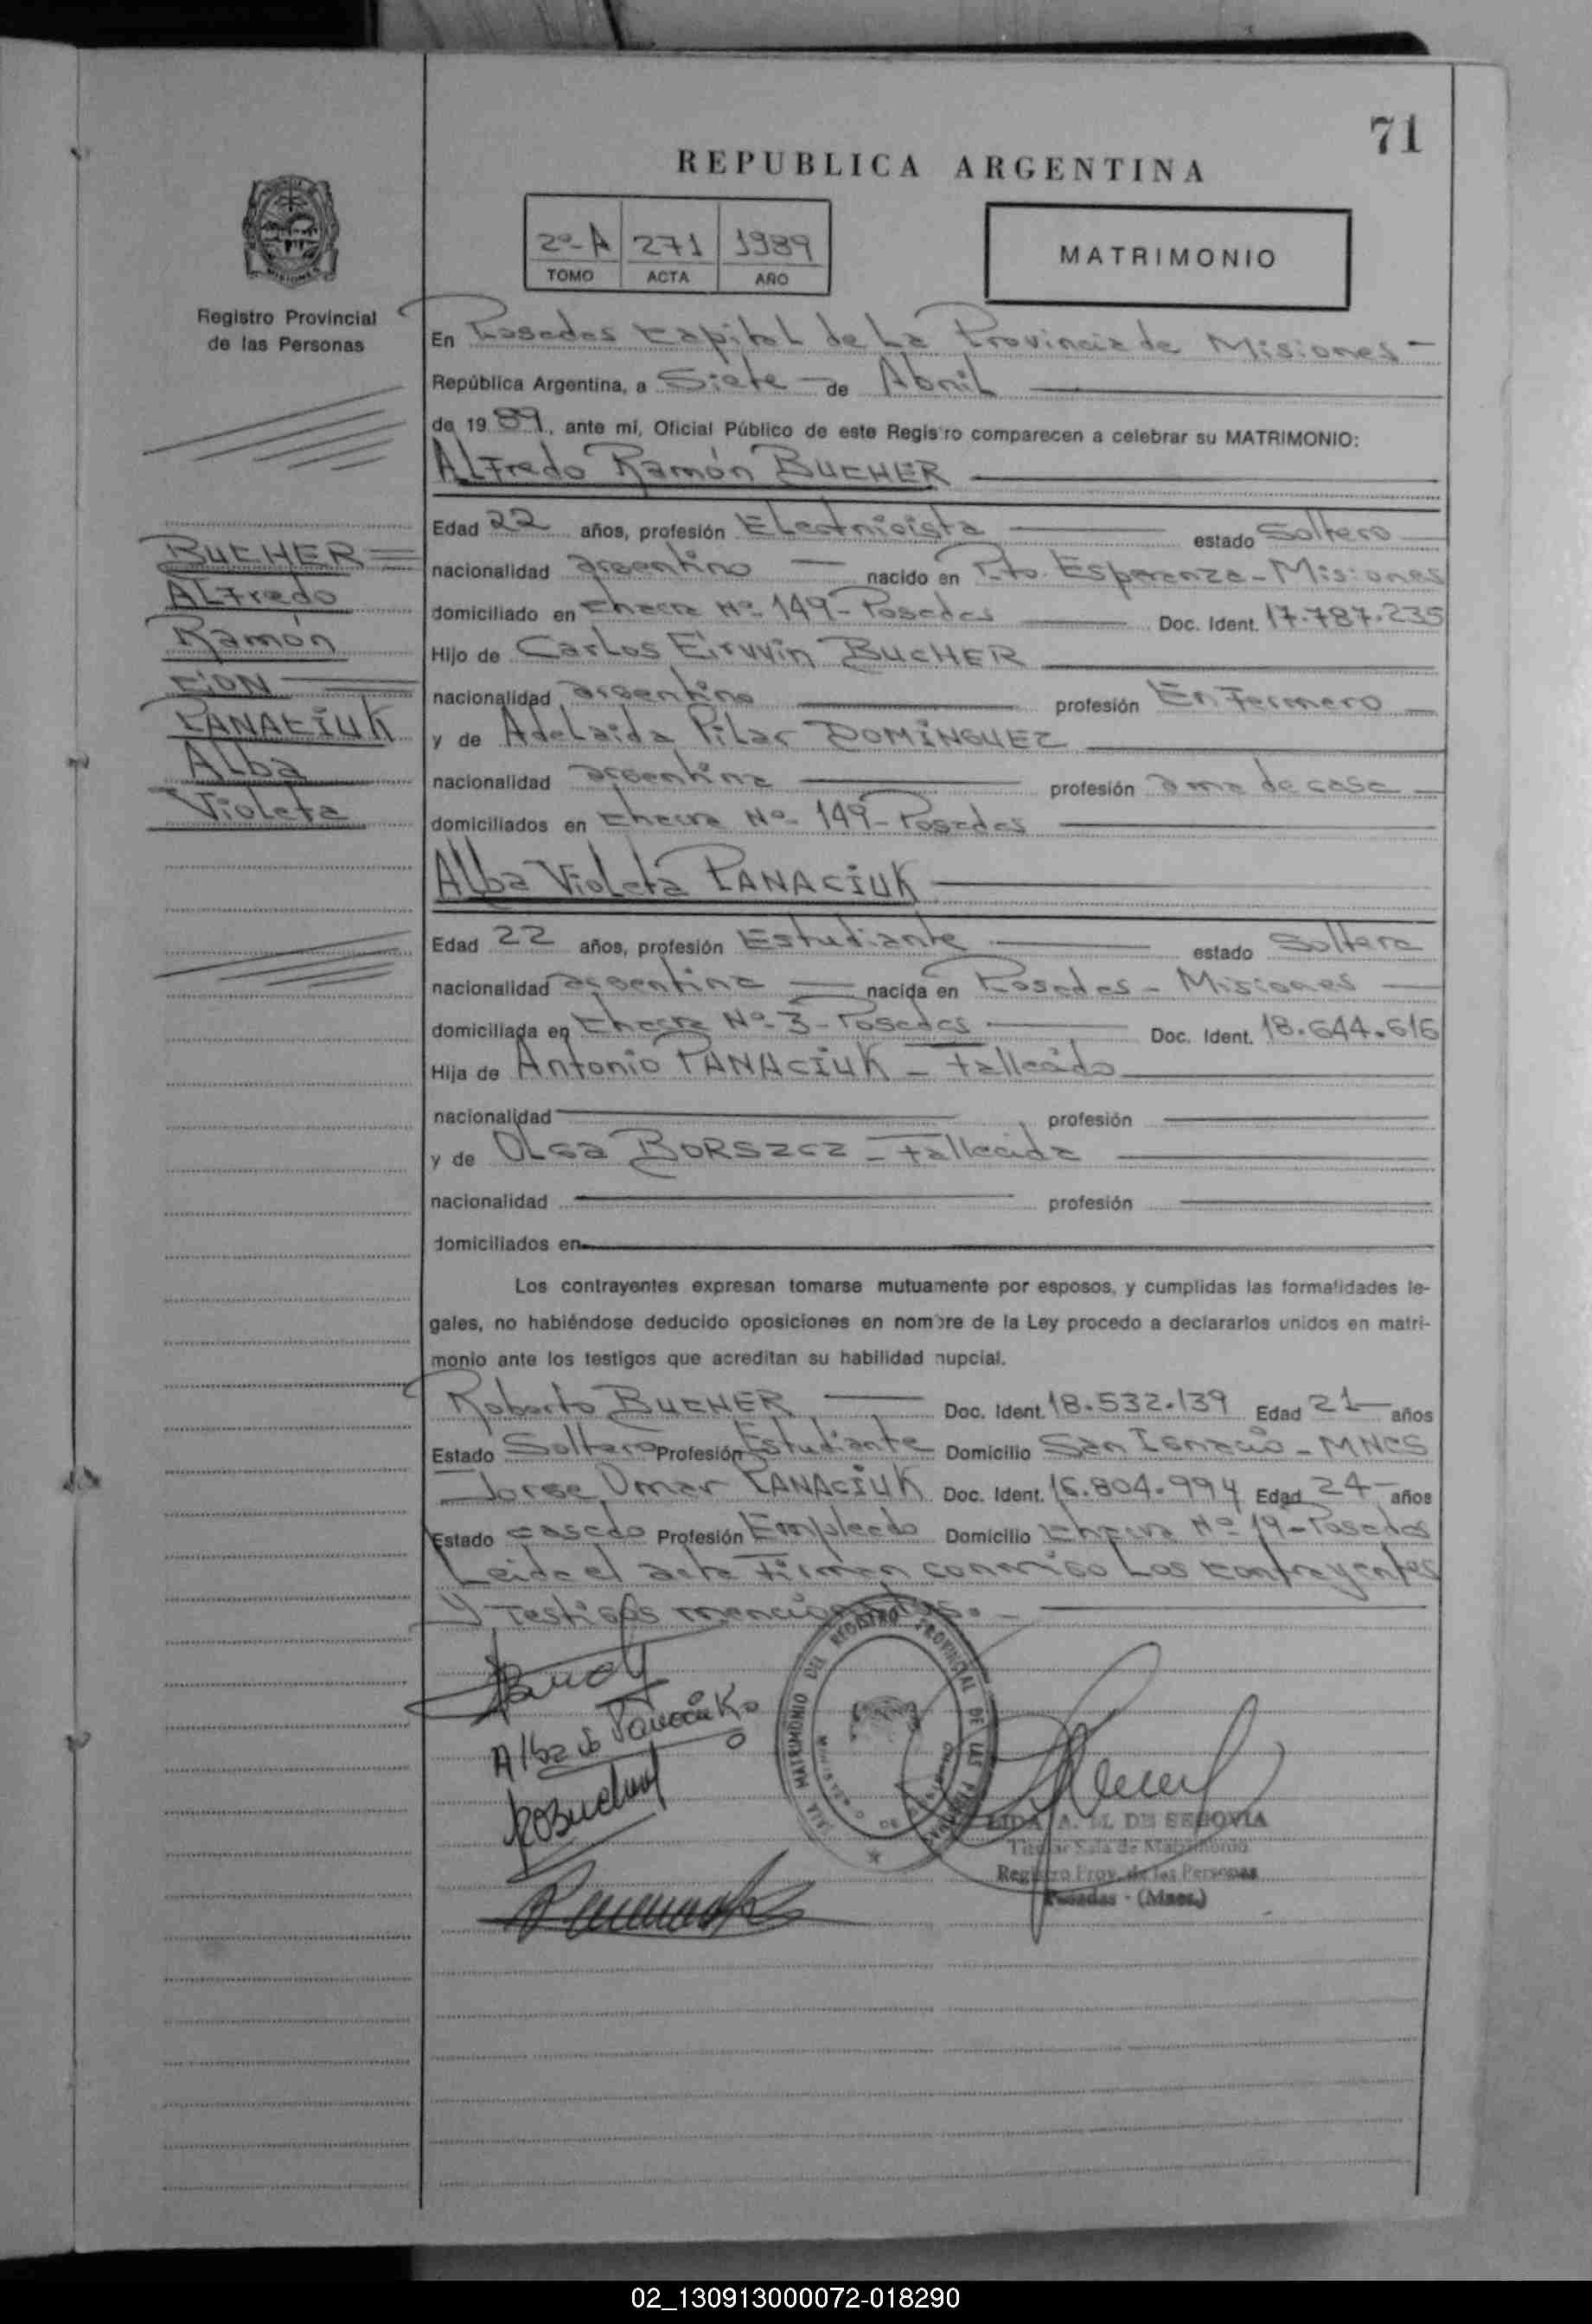 71
REPUBLICA ARGENTINA
2º-A 271 1989
TOMO ACTA AÑO
MATRIMONIO
Registro Provincial
de las Personas
En Posadas Capital de La Provincia de Misiones -
República Argentina, a Siete - de Abril
de 1989, ante mí, Oficial Público de este Registro comparecen a celebrar su MATRIMONIO:
ALFredo Ramón BUCHER
Edad 22 años, profesión Electricista estado Soltero
nacionalidad argentino nacido en Pto. Esperanza - Misiones
domiciliado en Chacra Nº 149 - Posadas Doc. Ident. 17.787.235
Hijo de Carlos Eirwin BUCHER
nacionalidad argentino profesión Enfermero
y de Adelaida Pilar DOMÍNGUEZ
nacionalidad argentina profesión ama de casa
domiciliados en Chacra Nº 149 - Posadas
Alba Violeta PANACIUK
Edad 22 años, profesión Estudiante estado Soltera
nacionalidad argentina nacida en Posadas - Misiones
domiciliada en Chacra Nº 3 - Posadas Doc. Ident. 18.644.616
Hija de Antonio PANACIUK - Fallecido
nacionalidad profesión
y de Olga BORSZCZ - Fallecida
nacionalidad profesión
domiciliados en
Los contrayentes expresan tomarse mutuamente por esposos, y cumplidas las formalidades le-
gales, no habiéndose deducido oposiciones en nombre de la Ley procedo a declararlos unidos en matri-
monio ante los testigos que acreditan su habilidad nupcial.
Roberto BUCHER Doc. Ident. 18.532.139 Edad 21 años
Estado Soltero Profesión Estudiante Domicilio San Ignacio - MNES
Jorge Omar PANACIUK Doc. Ident. 16.804.994 Edad 24 años
Estado casado Profesión Empleado Domicilio Chacra Nº 19 - Posadas
Leida el acta Firman conmigo Los contrayentes
y Testigos mencionados. -
BUCHER
ALFredo
Ramón
CON
PANACIUK
Alba
Violeta
Alba V. Panaciuk
SALA MATRIMONIO DEL REGISTRO PROVINCIAL DE LAS PERSONAS
LIDA A. M. DE SEGOVIA
Titular Sala de Matrimonio
Registro Prov. de las Personas
Posadas - (Mnes.)
02_130913000072-018290